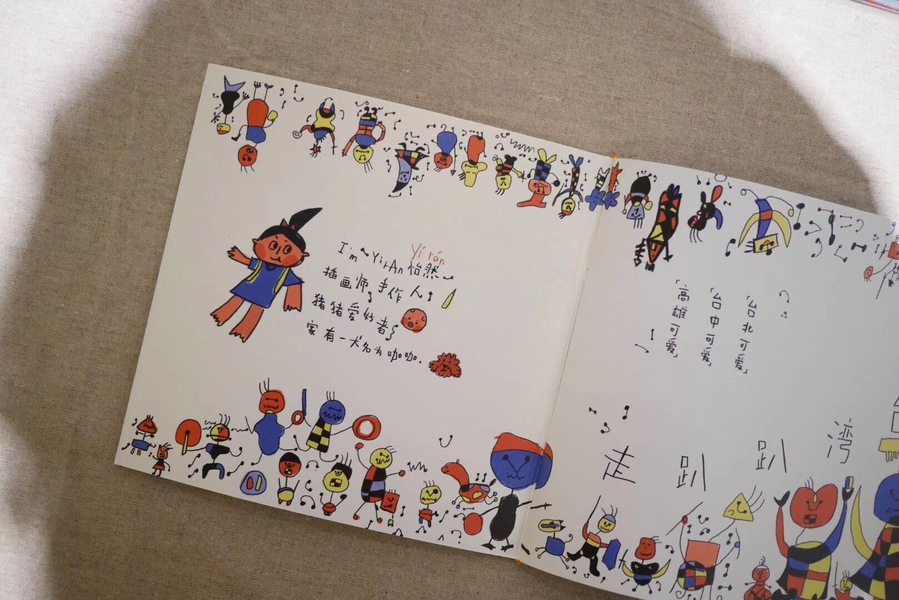 Yi rán
I'm~YirAn 怡然~
插画师,手作人:
猪猪爱好者
家有一犬名为咖咖.
「台北可爱」
「台中可爱」
「高雄可爱」
湾趴趴走